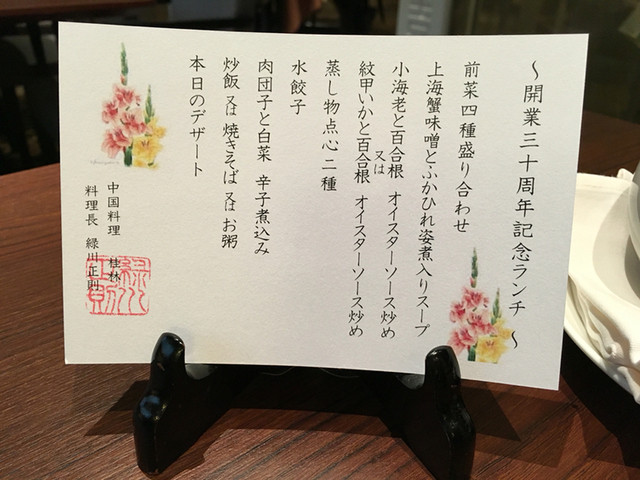 ～開業三十周年記念ランチ～
前菜四種盛り合わせ
上海蟹味噌とふかひれ姿煮入りスープ
小海老と百合根 オイスターソース炒め
又は
紋甲いかと百合根 オイスターソース炒め
蒸し物点心二種
水餃子
肉団子と白菜 辛子煮込み
炒飯 又は 焼きそば 又は お粥
本日のデザート
中国料理 桂林
料理長 緑川正則